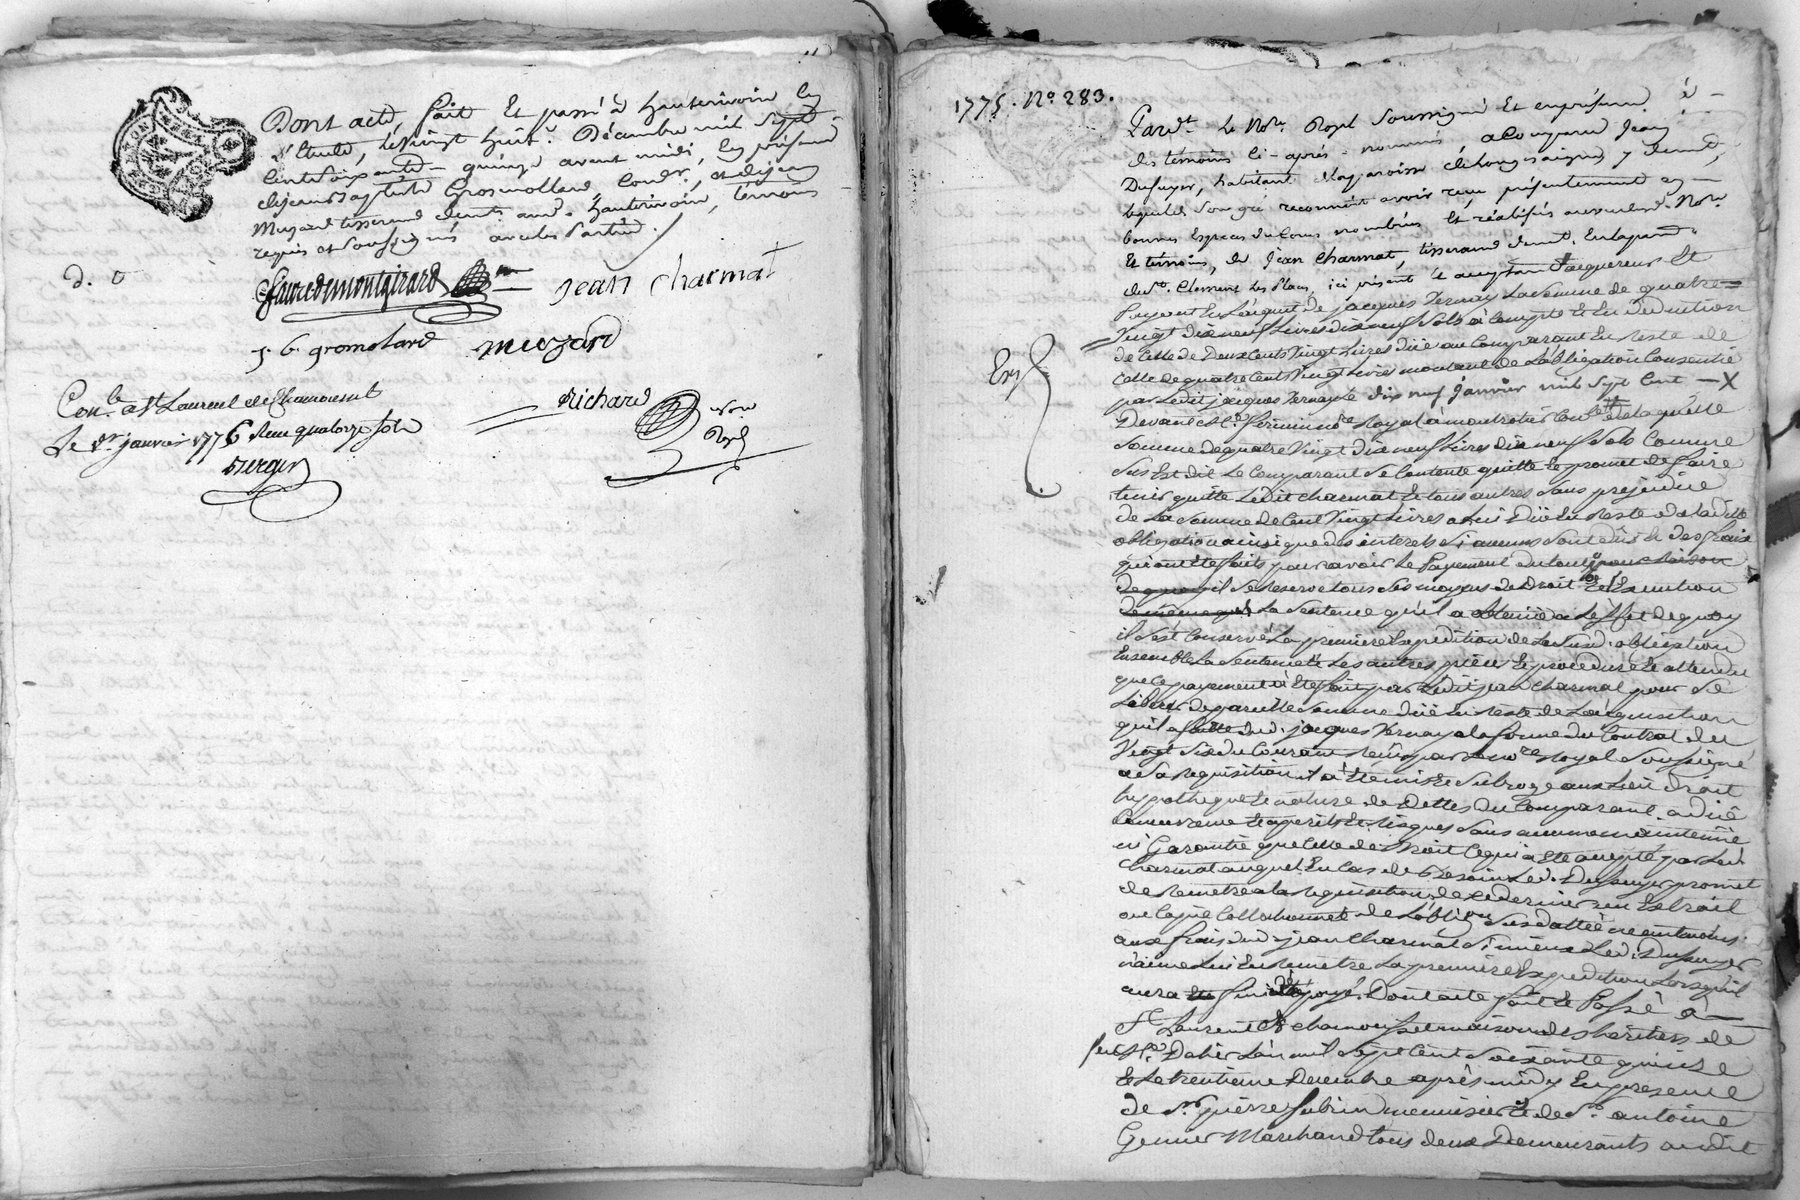 Dont acte, fait Et passé à hauterivoire En
l'Etude, le vingt huit.e Decembre mil sept
Cent soixante-quinze avant midi, En presence
de jean Baptiste Grosmollard Cordr, et de jean
Muzard tisserand demts. aud. hauterivoire, témoins
requis et soussignés avec les parties.
fauredemontgirard jean charmat
j. b. gromolard muzard
richard
Con.lé a st Laurent de Chamousset
Le 1er janvier 1776 Reçu quatorze sols
Not.re
Royal
1775. No. 283.
Pardt. Le Nore. Royal soussigné Et en présence
des témoins ci-après-nommés a Comparu Jean
Dufuyer, habitant de la paroisse de Longessaigne y demt.,
lequel de son gré reconnoit avoir reçu présentement en
bonnes Especes du Cours nombrées Et réalisées au vu dud. Nore.
Et témoins, de Jean Charmat, tisserand demt. En la par.
de St. Clement Les Places, ici présent et acceptant acquereur Et
payant En l'acquit de jacques Vernay La somme de quatre
Vingt dix neuf Livres dix neuf sols à Compte Et En deduction
de Celle de Deux Cents Vingt Livres düe au Comparant En Reste de
Celle de quatre Cents Vingt Livres montant de L'obligation Consentie
par Ledit jacques Vernay Le dix neuf janvier mil sept Cent — X
Devant Me. no.re Royal à de laquelle
somme de quatre Vingt Dix neuf Livres dix neuf sols Comme
sus Est dit Le Comparant se Contente quitte Et promet de faire
tenir quitte Ledit charmat Et tous autres sans prejudice
de La somme de Cent Vingt Livres a Lui Düe En Reste de la ditte
obligation ainsi que des interets si aucuns sont dus Et des fraix
qui ont Eté faits pour avoir Le payement du tout pour raison
de quoy il se reserve tous ses moyens de Droit Et d'Execution
de même que La sentence qu'il a obtenüe a L'effet de quoy
il s'est Conservé La premiere Expedition de La susd. obligation
Ensemble La sentence Et Les autres pieces Et procedure Et attendu
que Ce payement a Eté fait par Ledit jean Charmat pour se
Liberer de pareille somme düe En reste de L'acquisition
qu'il a faitte dud. jacques Vernay a la forme du Contrat du
Vingt six du Courant Reçu par Le nore. Royal soussigné
de sa requisition il a Eté mis Et subrogé aux Lieu droit
hypotheque Et nature de Dettes du Comparant a düe
Concurrence Et a perils Et risques sans aucune maintenüe
ni Garantie que Celle de Droit Ce qui a Eté accepté par Led.
Charmat auquel En Cas de Besoin Led. Dufuyer promet
de remetre a la requisition de Ce dernier un Extrait
ou Copie Collationnée de L'oblig.on sus dattée
aux fraix dud. jean Charmat si mieux Led. Dufuyer
n'aime Lui En remetre La premiere Expedition Lorsqu'il
aura Eté payé. Dont acte fait Et Passé à
St. Laurent de chamousset maison des heritiers de
feu Me. Dahier L'an mil sept Cent soixante quinze
Et Le trentieme Decembre après midy En presence
de sr. pierre Subrin menuisier Et de sr. antoine
Genier Marchand tous deux Demeurants audit